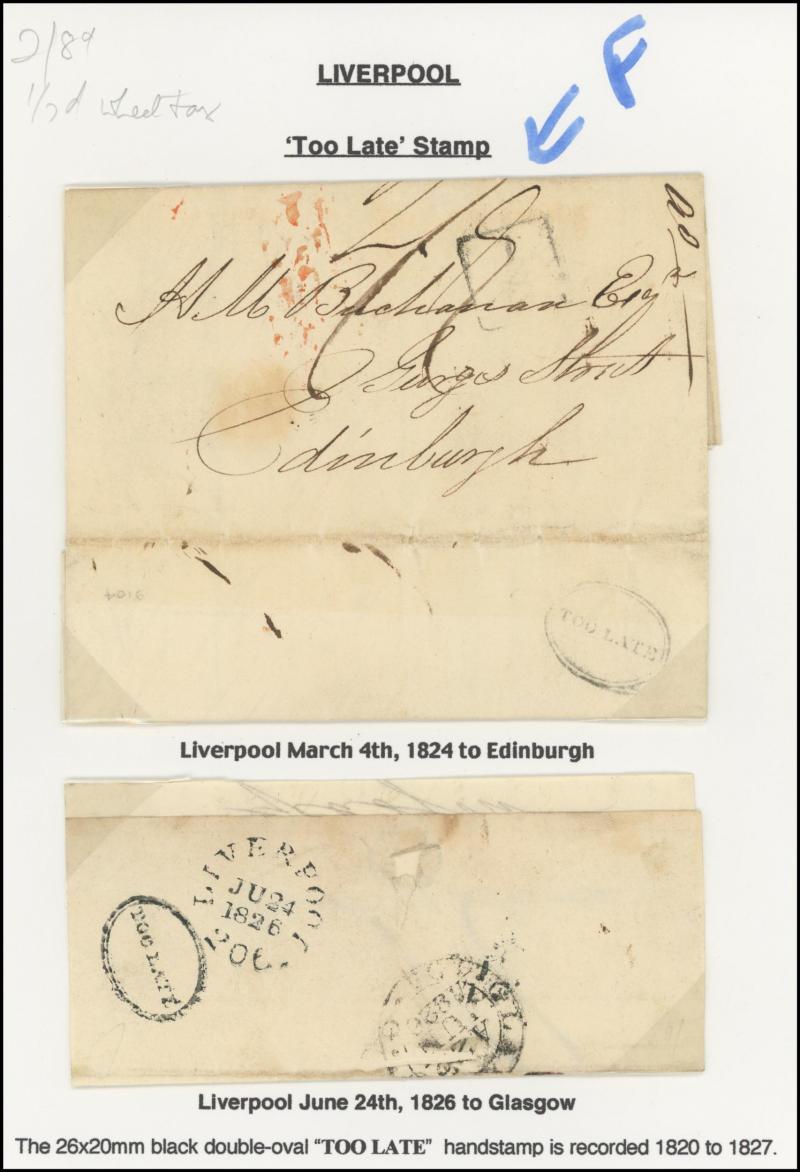 2/89
F
LIVERPOOL
½d wheel tax
'Too Late' Stamp
2/8
H M Buchanan Esqr
Georges Street
Edinburgh
9104
TOO LATE
Liverpool March 4th, 1824 to Edinburgh
LIVERPOOL
JU 24
1826
206
TOO LATE
Liverpool June 24th, 1826 to Glasgow
The 26x20mm black double-oval “TOO LATE” handstamp is recorded 1820 to 1827.